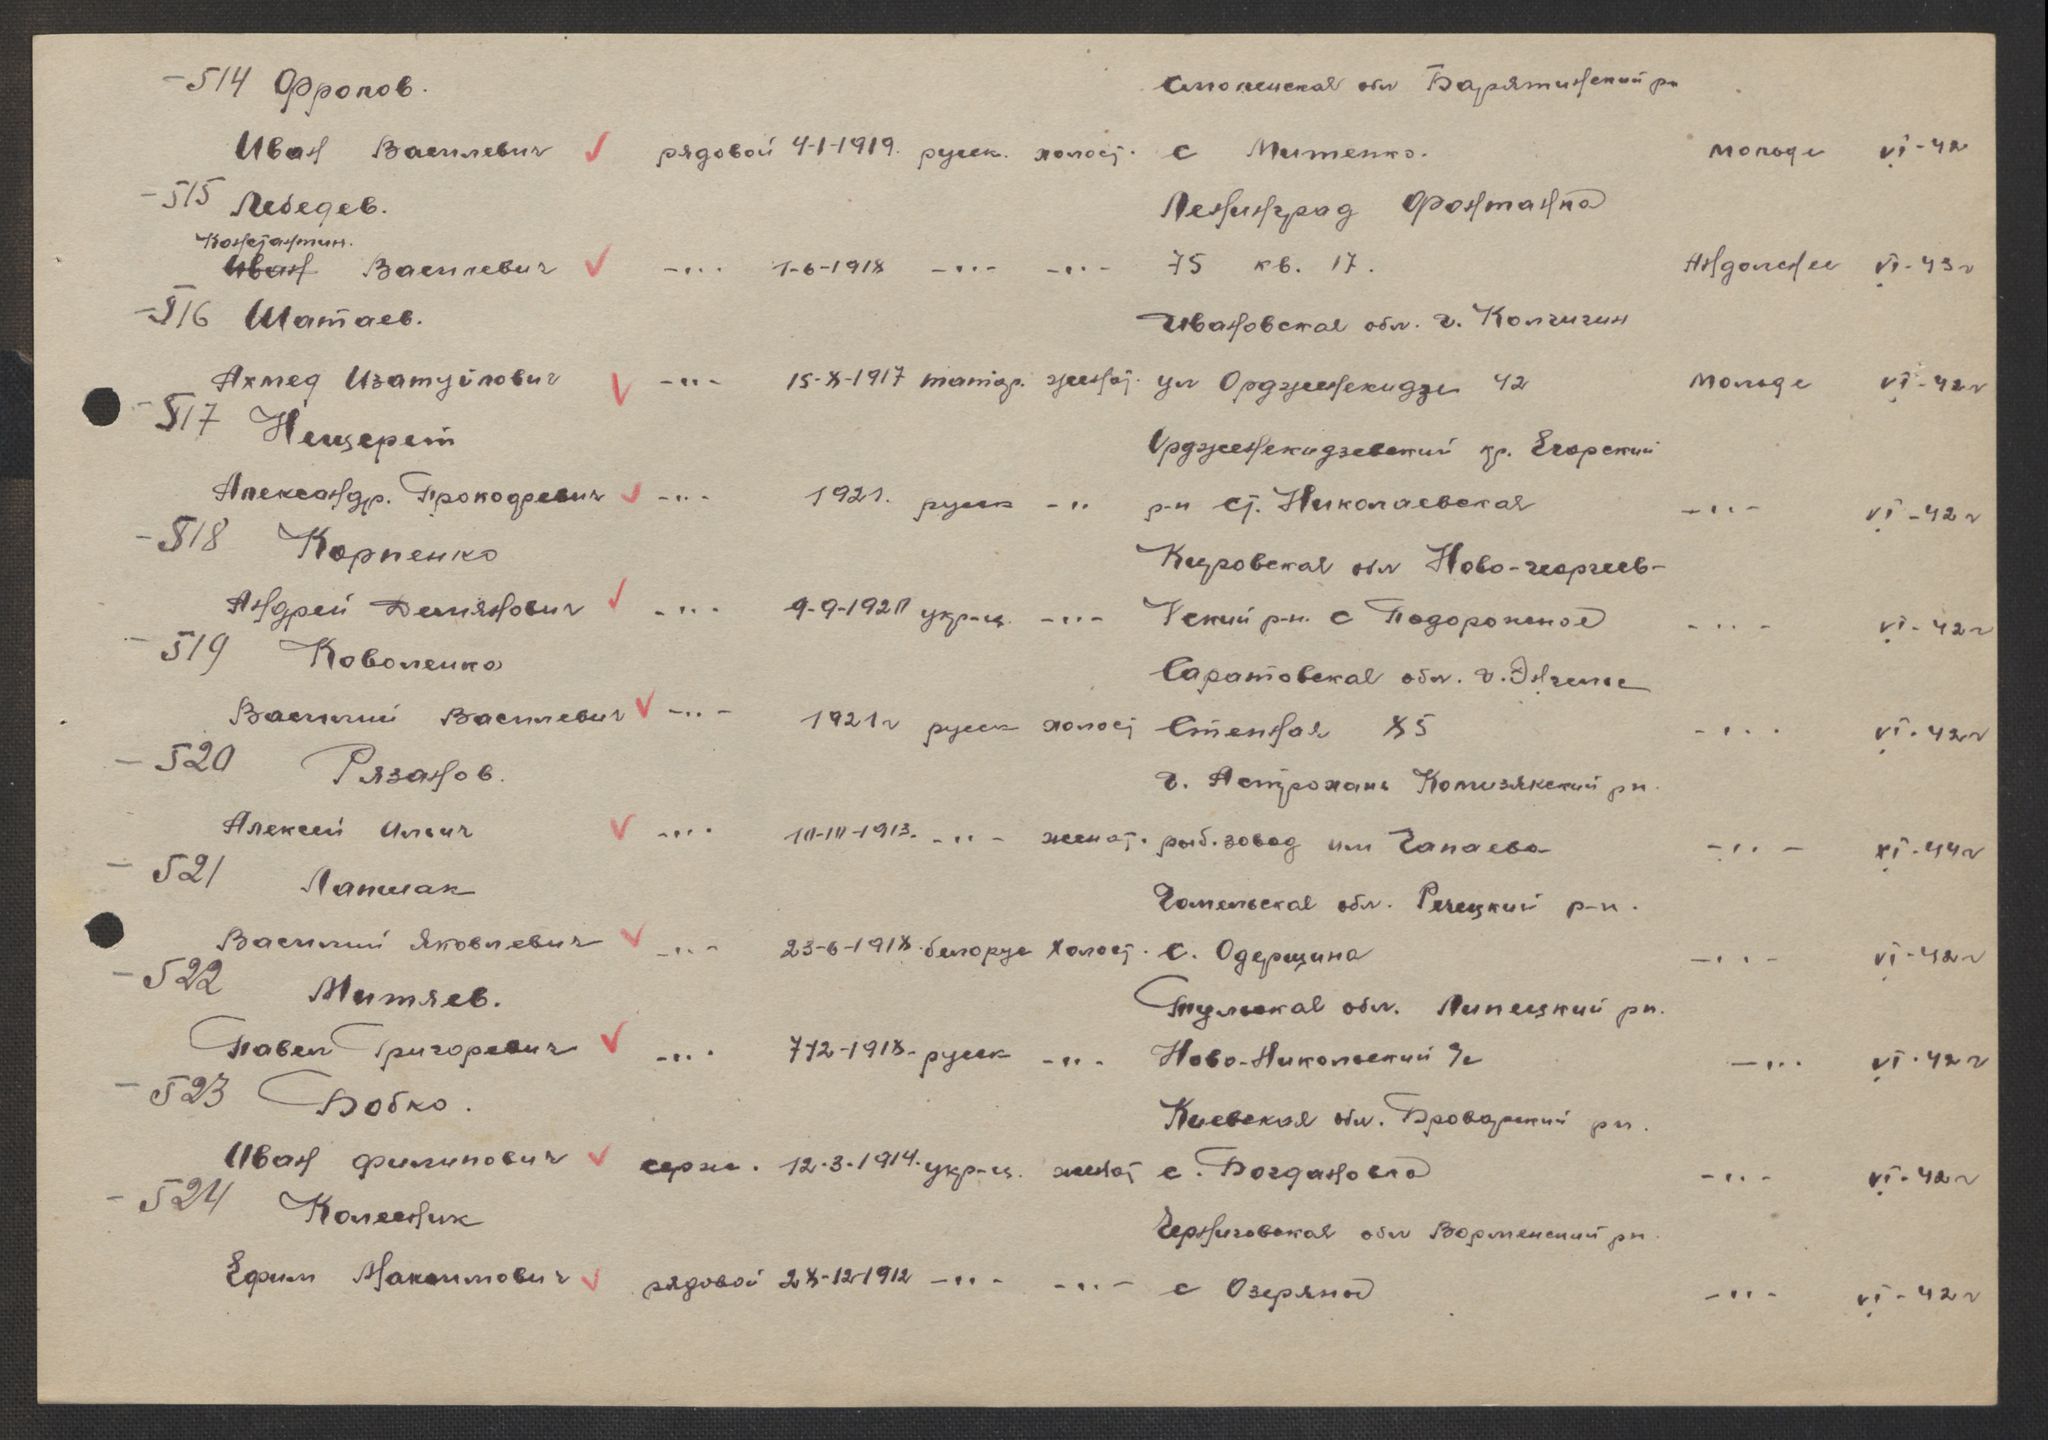 -514 Фролов. Смоленская обл Барятинский рн
Иван Василевич ✓ рядовой 4-I-1919. русск. холост. с Митенко. Мольде VI-42
-515 Лебедев. Ленинград Фонтанка
Константин.
Иван Василевич ✓ -"- 1-6-1918 -"- -"- 75 кв. 17. Андолснес VI-43г
-516 Шатаев. Ивановская обл. г. Колчугин
Ахмед Изатулович ✓ -"- 15-8-1917 татар. женат. ул Орджоникидзе 42 Мольде VI-42г
-517 Нещерет Орджоникидзевский кр. Егорский
Александр. Прокофевич ✓ -"- 1921. русск -"- р-н ст. Николаевская -"- VI-42г
-518 Карпенко Кировская обл Ново-георгиев-
Андрей Демянович ✓ -"- 9-9-1920 укр-ц. -"- ский р-н. с Подорожная -"- VI-42г
-519 Коваленко Саратовская обл. г. Энгельс
Василий Василевич ✓ -"- 1921г русск холост Степная 85 -"- VI-42г
-520 Рязанов. г. Астрахань Камызякский рн.
Алексей Ильич ✓ -"- 10-III-1913. -"- женат. рыб.завод им Чапаева -"- XI-44г
-521 Лапшак Гомельская обл. Речецкий р-н.
Василий Яковлевич ✓ -"- 23-6-1918. белорус Холост. с. Одерщина -"- VI-42г
-522 Митяев. Тульская обл. Липецкий рн.
Павел Григоревич ✓ -"- 7-12-1918- русск -"- Ново-Никольский -"- VI-42г
-523 Бобко. Киевская обл. Броварский рн.
Иван Филипович ✓ серж. 12-3-1914. укр-ц. женат с. Богдановка -"- VI-42г
-524 Колесник Черниговская обл Варменский рн.
Ефим Максимович ✓ рядовой 28-12-1912 -"- -"- с Озеряна -"- VI-42г